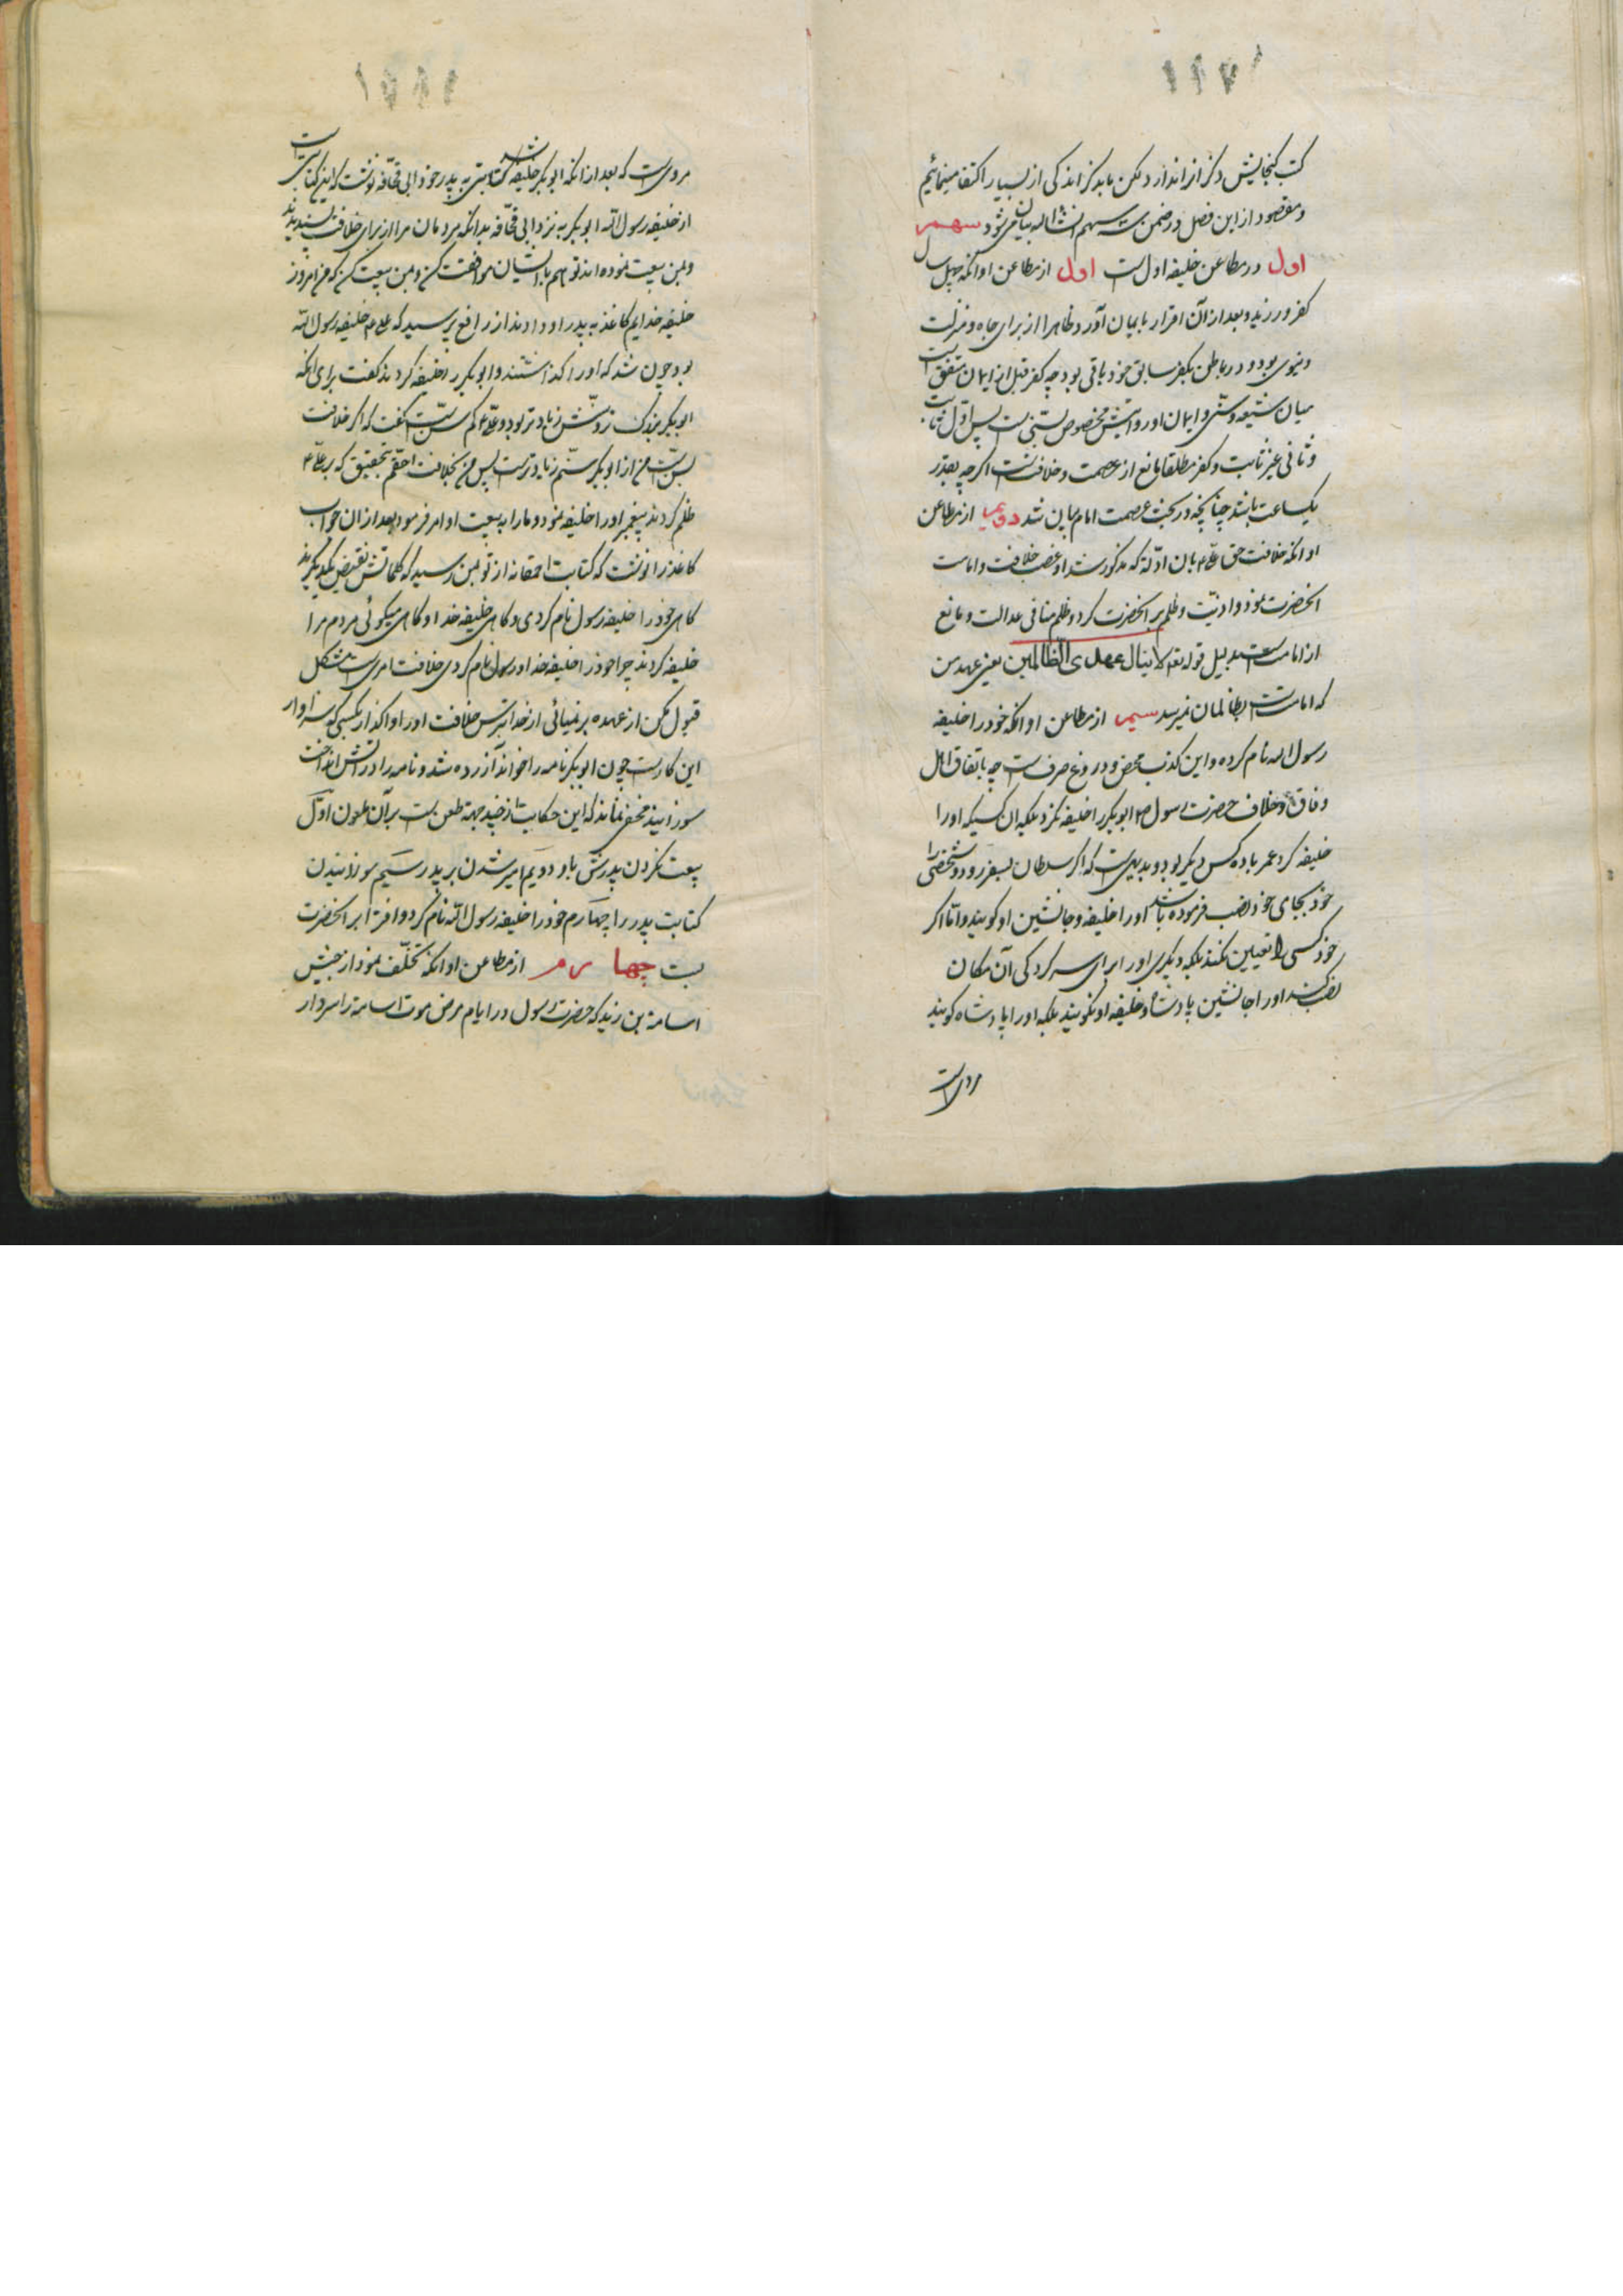 کتب گنجایش ذکر انرا ندارد لکن باید کز اندکی از بسیار اکتفا مینمائیم
و مقصود از این فصل در ضمن سه سهم انشاالله بیان می‌شود سهم
اول در مطاعن خلیفه اول است اول از مطاعن او انکه چهل سال
کفر ورزید و بعد از آن اقرار بایمان آورد ظاهرا از برای جاه و منزلت
دنیوی بود و در باطن بکفر سابق خود باقی بود چه کفر قبل از ایمان متفق است
میان شیعه و سنی و ایمان او روایتش مخصوص بسنی است پس اول ثابت
و ثانی غیر ثابت و کفر مطلقا مانع از عصمت و خلافتست اگر چه بقدر
یکساعت باشد چنانچه در بحث عصمت امام بیان شد دویم از مطاعن
او انکه خلافت حق علی ع بان ادله که مذکور شد او غصب خلافت و امامت
انحضرت نمود و اذیت و ظلم بر انحضرت کرد و ظلم منافی عدالت و مانع
از امامت است بدلیل قوله تعه لا ینال عهدی الظالمین یعنی عهد من
که امامت است بظالمان نمیرسد سیم از مطاعن او انکه خود را خلیفه
رسول الله نام کرده و این کذب محض و دروغ صرف است چه باتفاق اهل
وفاق و خلاف حضرت رسول ص ابوبکر را خلیفه نکرد بلکه ان کسیکه او را
خلیفه کرد عمر با ده کس دیگر بود و بدیهیست که اگر سلطان بسفر رود و شخصی را
خود بجای خود نصب فرموده باشد او را خلیفه و جانشین او گویند و اما اگر
خود کسی را تعیین نکند بلکه دیگری او را برای سرکردگی آن مکان
نصب کند او را جانشین پادشاه و خلیفه او نگویند بلکه او را پادشاه گویند
مروی است
مروی است که بعد از انکه ابوبکر خلیفه شد کتابتی به پدر خود ابی قحافه نوشت که این کتابتی است
از خلیفه رسول الله ابوبکر به نزد ابی قحافه بدانکه مردمان مرا از برای خلافت پسندیدند
و بمن بیعت نموده اند تو هم با ایشان موافقت کن و بمن بیعت کن که من امروز
خلیفه خدایم کاغذ به پدر او دادند از رافع پرسید که علی ع خلیفه رسول الله
بود چون شد که او را گذاشتند و ابوبکر را خلیفه کردند گفت برای انکه
ابوبکر بزرگ و سنش زیادتر بود و علی ع کم سن است گفت که اگر خلافت
بسن است من از ابوبکر سنم زیادتر است پس من بخلافت احقم بتحقیق که بر علی ع
ظلم کردند پیغمبر او را خلیفه نمود و ما را به بیعت او امر فرمود بعد از ان جواب
کاغذ را نوشت که کتابت احمقانه از تو بمن رسید که کلماتش نقیض یکدیگرند
گاهی خود را خلیفه رسول نام کردی و گاهی خلیفه خدا و گاهی میگوئی مردم مرا
خلیفه کردند چرا خود را خلیفه خدا و رسول نام کردی خلافت امری است مشکل
قبول مکن از عهده بر نمیائی از خدا بترس خلافت او را واگذار بکسی که سزاوار
این کار است چون ابوبکر نامه را خواند آزرده شد و نامه را در آتش انداخت
سوزانید مخفی نماند که این حکایت از چند جهة طعن است بر آن ملعون اول
بیعت نکردن پدرش باو دویم امیر شدن بر پدر سیم سوزانیدن
کتابت پدر را چهارم خود را خلیفه رسول الله نام کرد و افترا بر انحضرت
بست چهارم از مطاعن او انکه تخلف نمود از جیش
اسامة بن زید که حضرت رسول در ایام مرض موت اسامة را سردار